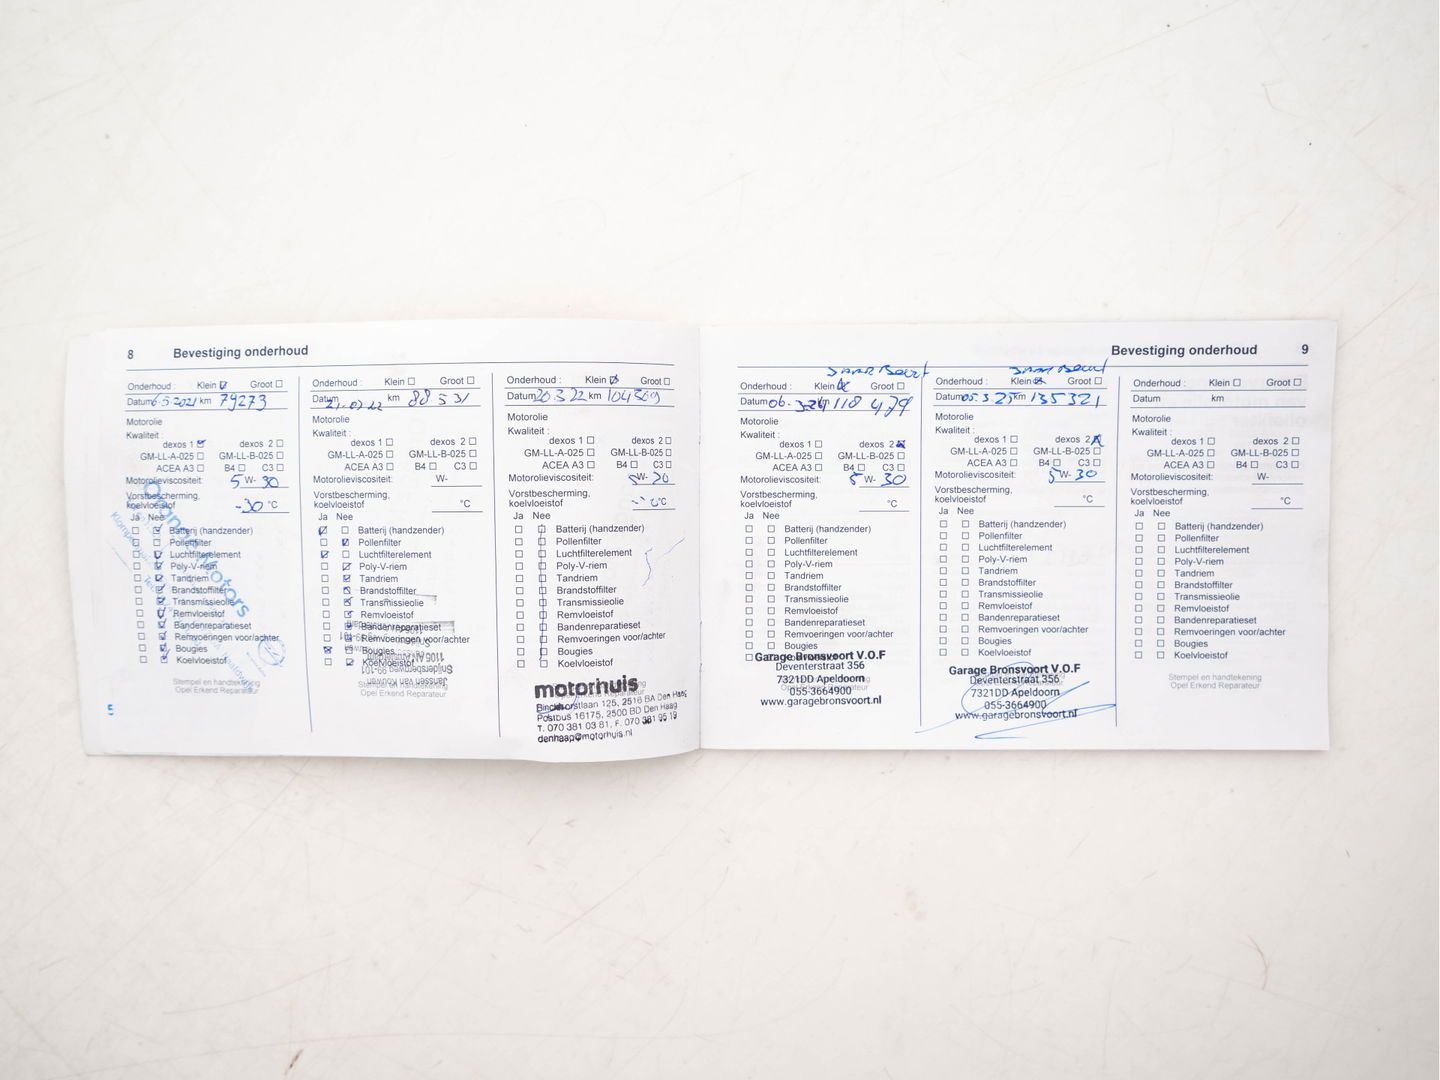 8 Bevestiging onderhoud
Onderhoud : Klein ☑ Groot ☐
Datum 6-5-2021 km 79273
Motorolie
Kwaliteit :
dexos 1 ☑ dexos 2 ☐
GM-LL-A-025 ☐ GM-LL-B-025 ☐
ACEA A3 ☐ B4 ☐ C3 ☐
Motorolieviscositeit: 5 W- 30
Vorstbescherming,
koelvloeistof -30 °C
Ja Nee
Batterij (handzender)
Pollenfilter
Luchtfilterelement
Poly-V-riem
Tandriem
Brandstoffilter
Transmissieolie
Remvloeistof
Bandenreparatieset
Remvoeringen voor/achter
Bougies
Koelvloeistof
Stempel en handtekening
Opel Erkend Reparateur
5
Onderhoud : Klein ☐ Groot ☐
Datum km 88531
Motorolie
Kwaliteit :
dexos 1 ☐ dexos 2 ☐
GM-LL-A-025 ☐ GM-LL-B-025 ☐
ACEA A3 ☐ B4 ☐ C3 ☐
Motorolieviscositeit: W-
Vorstbescherming,
koelvloeistof °C
Ja Nee
Batterij (handzender)
Pollenfilter
Luchtfilterelement
Poly-V-riem
Tandriem
Brandstoffilter
Transmissieolie
Remvloeistof
Bandenreparatieset
Remvoeringen voor/achter
Bougies
Koelvloeistof
Janssen van Kouwen
Snijdersbergweg 99-101
Stempel en handtekening
Opel Erkend Reparateur
Onderhoud : Klein ☑ Groot ☐
Datum 20.3.22 km 104569
Motorolie
Kwaliteit :
dexos 1 ☐ dexos 2 ☐
GM-LL-A-025 ☐ GM-LL-B-025 ☐
ACEA A3 ☐ B4 ☐ C3 ☐
Motorolieviscositeit: W-
Vorstbescherming,
koelvloeistof °C
Ja Nee
Batterij (handzender)
Pollenfilter
Luchtfilterelement
Poly-V-riem
Tandriem
Brandstoffilter
Transmissieolie
Remvloeistof
Bandenreparatieset
Remvoeringen voor/achter
Bougies
Koelvloeistof
motorhuis
Binckhorstlaan 125, 2516 BA Den Haag
Postbus 16175, 2500 BD Den Haag
T. 070 381 03 81, F. 070 381 95 19
denhaag@motorhuis.nl
Bevestiging onderhoud 9
JAARBEURT
Onderhoud : Klein ☒ Groot ☐
Datum 06.3-24 km 118 479
Motorolie
Kwaliteit :
dexos 1 ☐ dexos 2 ☒
GM-LL-A-025 ☐ GM-LL-B-025 ☐
ACEA A3 ☐ B4 ☐ C3 ☐
Motorolieviscositeit: 5 W- 30
Vorstbescherming,
koelvloeistof °C
Ja Nee
Batterij (handzender)
Pollenfilter
Luchtfilterelement
Poly-V-riem
Tandriem
Brandstoffilter
Transmissieolie
Remvloeistof
Bandenreparatieset
Remvoeringen voor/achter
Bougies
Garage Bronsvoort V.O.F
Deventerstraat 356
7321DD Apeldoorn
055-3664900
www.garagebronsvoort.nl
JAARBEURT
Onderhoud : Klein ☒ Groot ☐
Datum 05.3.25 km 135321
Motorolie
Kwaliteit :
dexos 1 ☐ dexos 2 ☒
GM-LL-A-025 ☐ GM-LL-B-025 ☐
ACEA A3 ☐ B4 ☐ C3 ☐
Motorolieviscositeit: 5 W- 30
Vorstbescherming,
koelvloeistof °C
Ja Nee
Batterij (handzender)
Pollenfilter
Luchtfilterelement
Poly-V-riem
Tandriem
Brandstoffilter
Transmissieolie
Remvloeistof
Bandenreparatieset
Remvoeringen voor/achter
Bougies
Koelvloeistof
Garage Bronsvoort V.O.F
Deventerstraat 356
7321DD Apeldoorn
055-3664900
www.garagebronsvoort.nl
Onderhoud : Klein ☐ Groot ☐
Datum km
Motorolie
Kwaliteit :
dexos 1 ☐ dexos 2 ☐
GM-LL-A-025 ☐ GM-LL-B-025 ☐
ACEA A3 ☐ B4 ☐ C3 ☐
Motorolieviscositeit: W-
Vorstbescherming,
koelvloeistof °C
Ja Nee
Batterij (handzender)
Pollenfilter
Luchtfilterelement
Poly-V-riem
Tandriem
Brandstoffilter
Transmissieolie
Remvloeistof
Bandenreparatieset
Remvoeringen voor/achter
Bougies
Koelvloeistof
Stempel en handtekening
Opel Erkend Reparateur